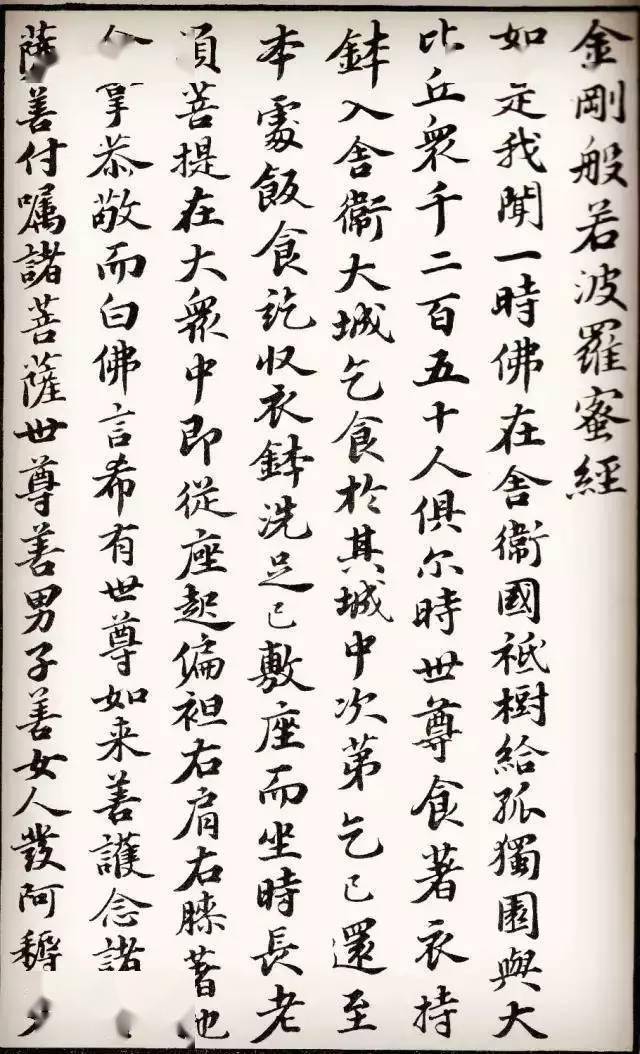 金剛般若波羅蜜經
如是我聞一時佛在舍衛國祇樹給孤獨園與大
比丘衆千二百五十人俱尔時世尊食著衣持
鉢入舍衛大城乞食於其城中次第乞已還至
本處飯食訖收衣鉢洗足已敷座而坐時長老
須菩提在大衆中即從座起偏袒右肩右膝著地
合掌恭敬而白佛言希有世尊如来善護念諸
薩善付嘱諸菩薩世尊善男子善女人發阿耨